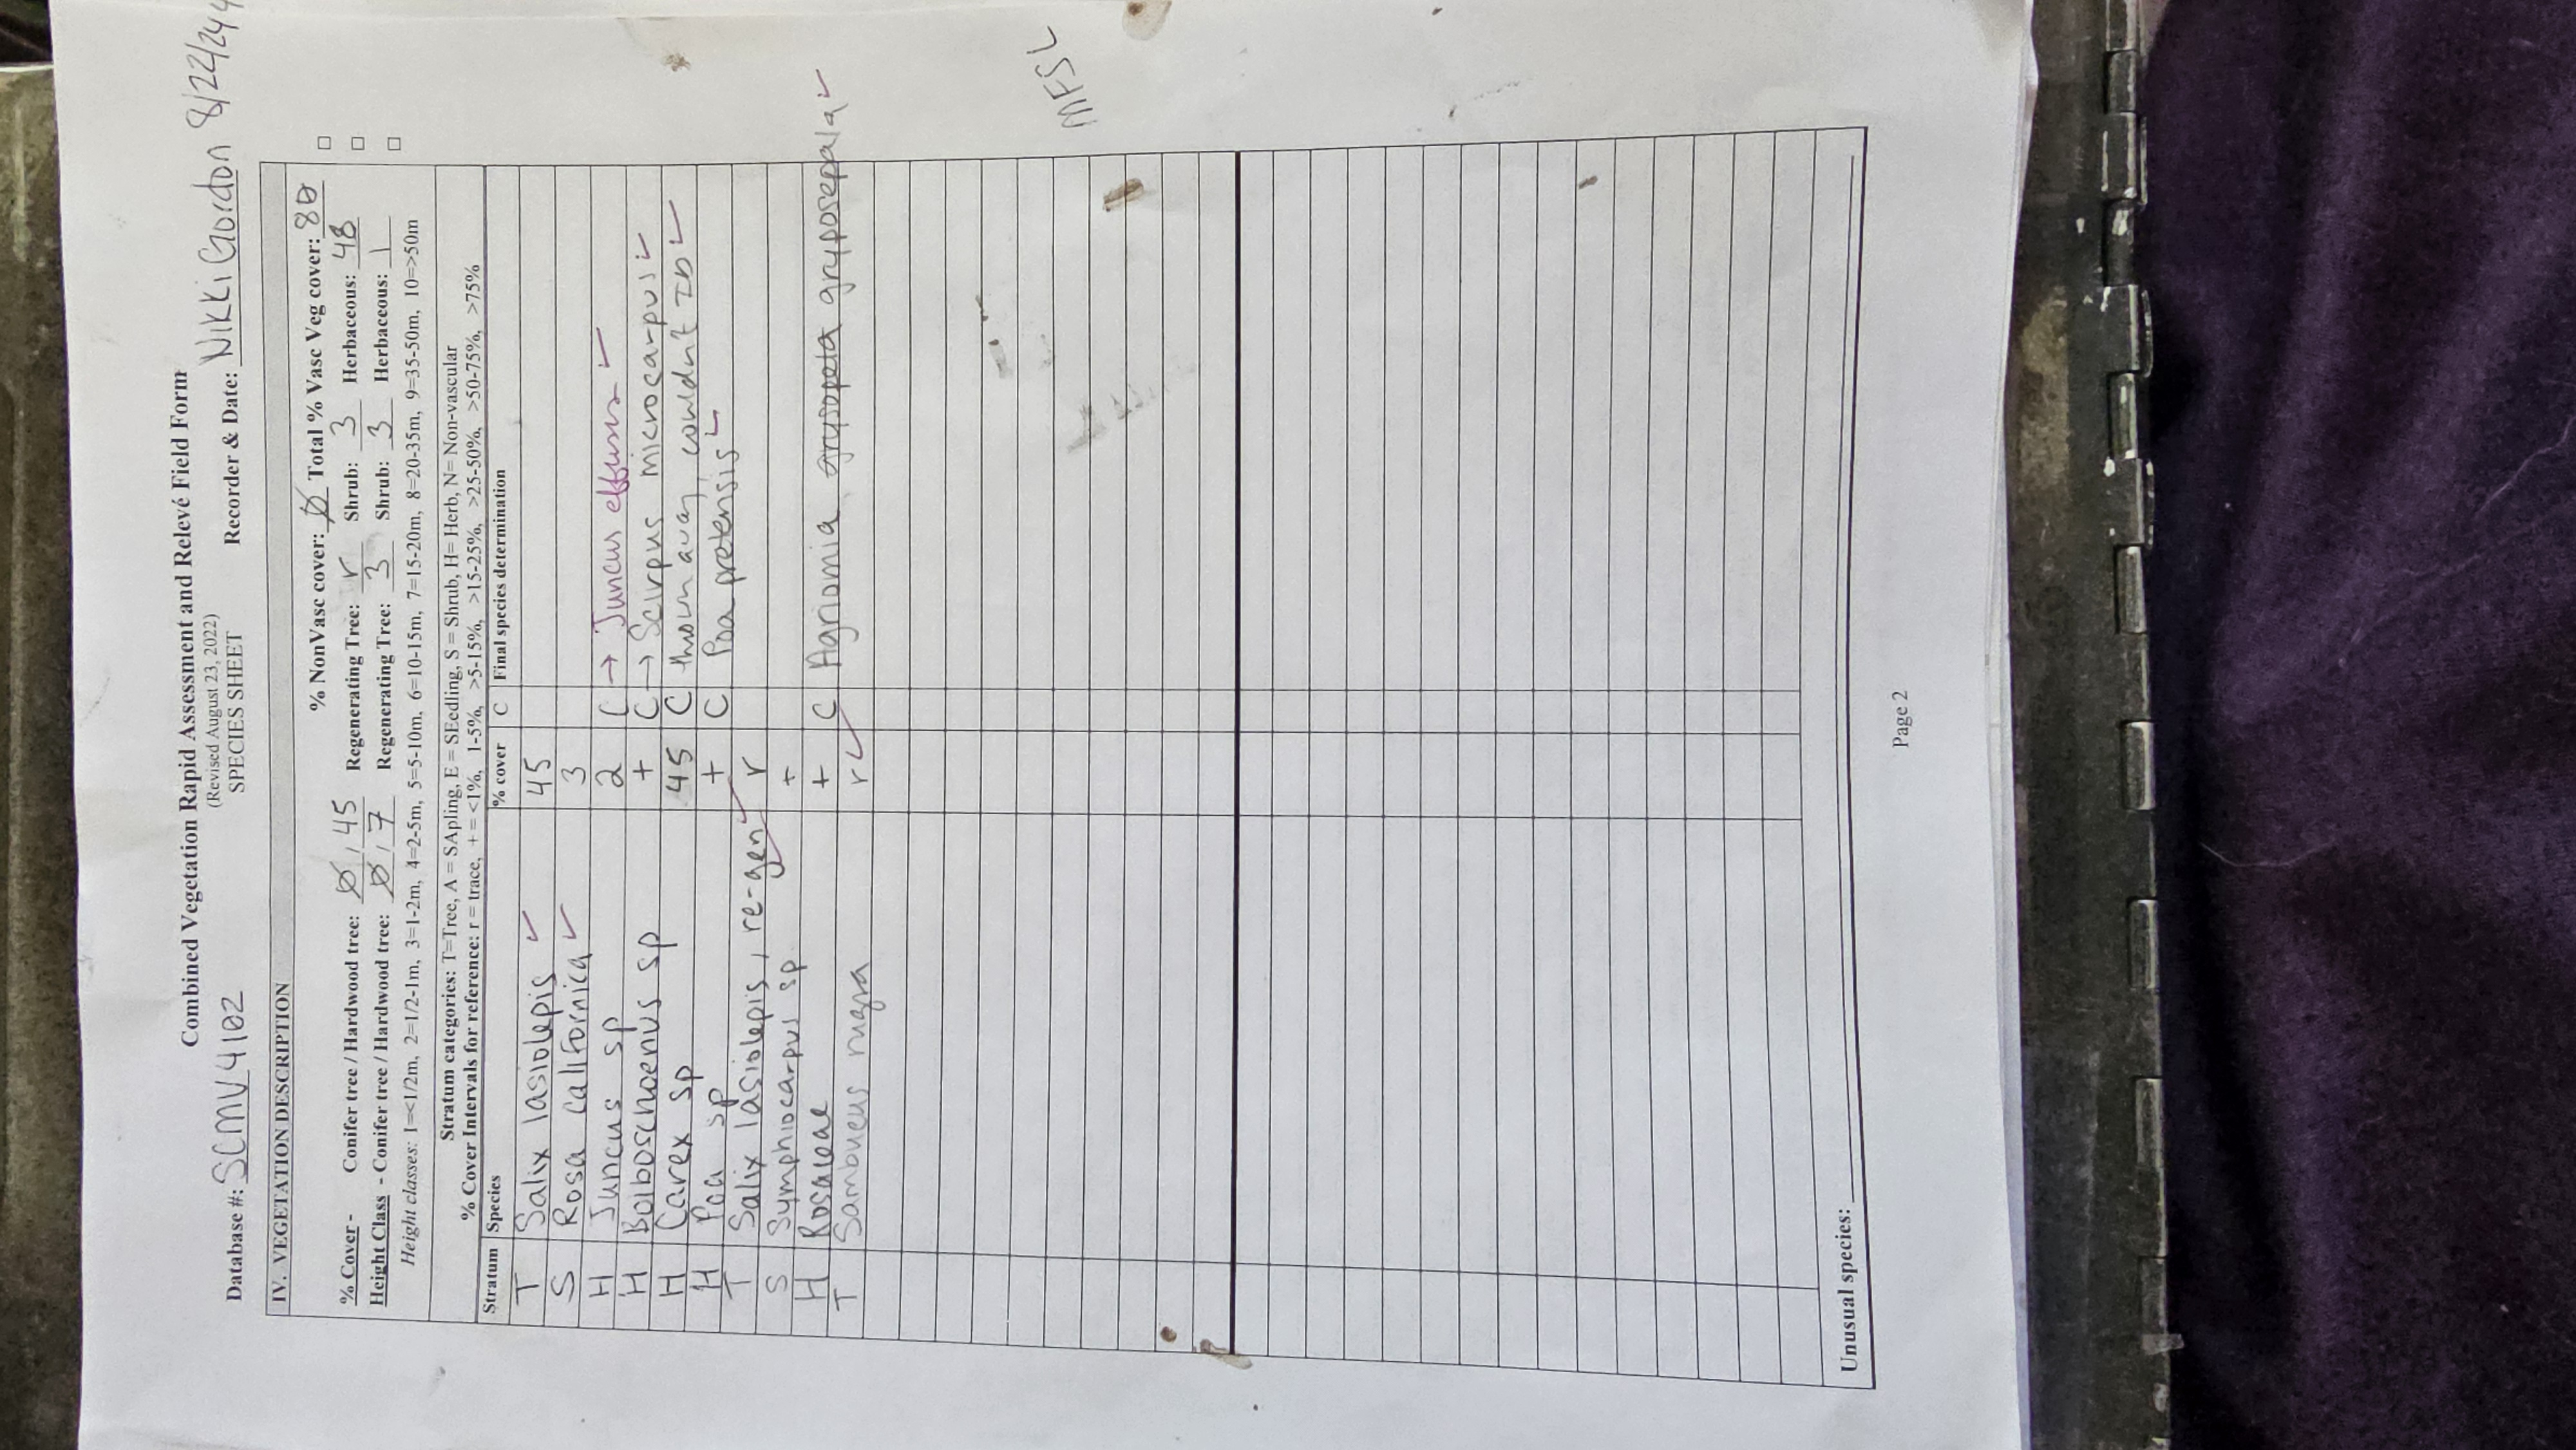 Combined Vegetation Rapid Assessment and Relevé Field Form
(Revised August 23, 2022)
SPECIES SHEET
Database #: SCMV4102 Recorder & Date: Nikki Gordon 8/22/24
IV. VEGETATION DESCRIPTION
% NonVasc cover: Ø Total % Vasc Veg cover: 80
% Cover - Conifer tree / Hardwood tree: Ø / 45 Regenerating Tree: r Shrub: 3 Herbaceous: 48
Height Class - Conifer tree / Hardwood tree: Ø / 7 Regenerating Tree: 3 Shrub: 3 Herbaceous: 1
Height classes: 1=<1/2m, 2=1/2-1m, 3=1-2m, 4=2-5m, 5=5-10m, 6=10-15m, 7=15-20m, 8=20-35m, 9=35-50m, 10=>50m
Stratum categories: T=Tree, A = SApling, E = SEedling, S = Shrub, H= Herb, N= Non-vascular
% Cover Intervals for reference: r = trace, + = <1%, 1-5%, >5-15%, >15-25%, >25-50%, >50-75%, >75%
Stratum Species % cover C Final species determination
T Salix lasiolepis ✓ 45
S Rosa californica ✓ 3
H Juncus sp 2 C → Juncus effusus ✓
H Bolboschoenus sp + C → Scirpus microcarpus ✓
H Carex sp 45 C thrown away, couldn't ID ✓
H Poa sp + C Poa pretensis ✓
T Salix lasiolepis, re-gen ✓ r
S Symphiocarpus sp +
H Rosaceae + C Agrionomia gryposepala ✓
T Sambucus nigra r ✓
MFSL
Unusual species:
Page 2